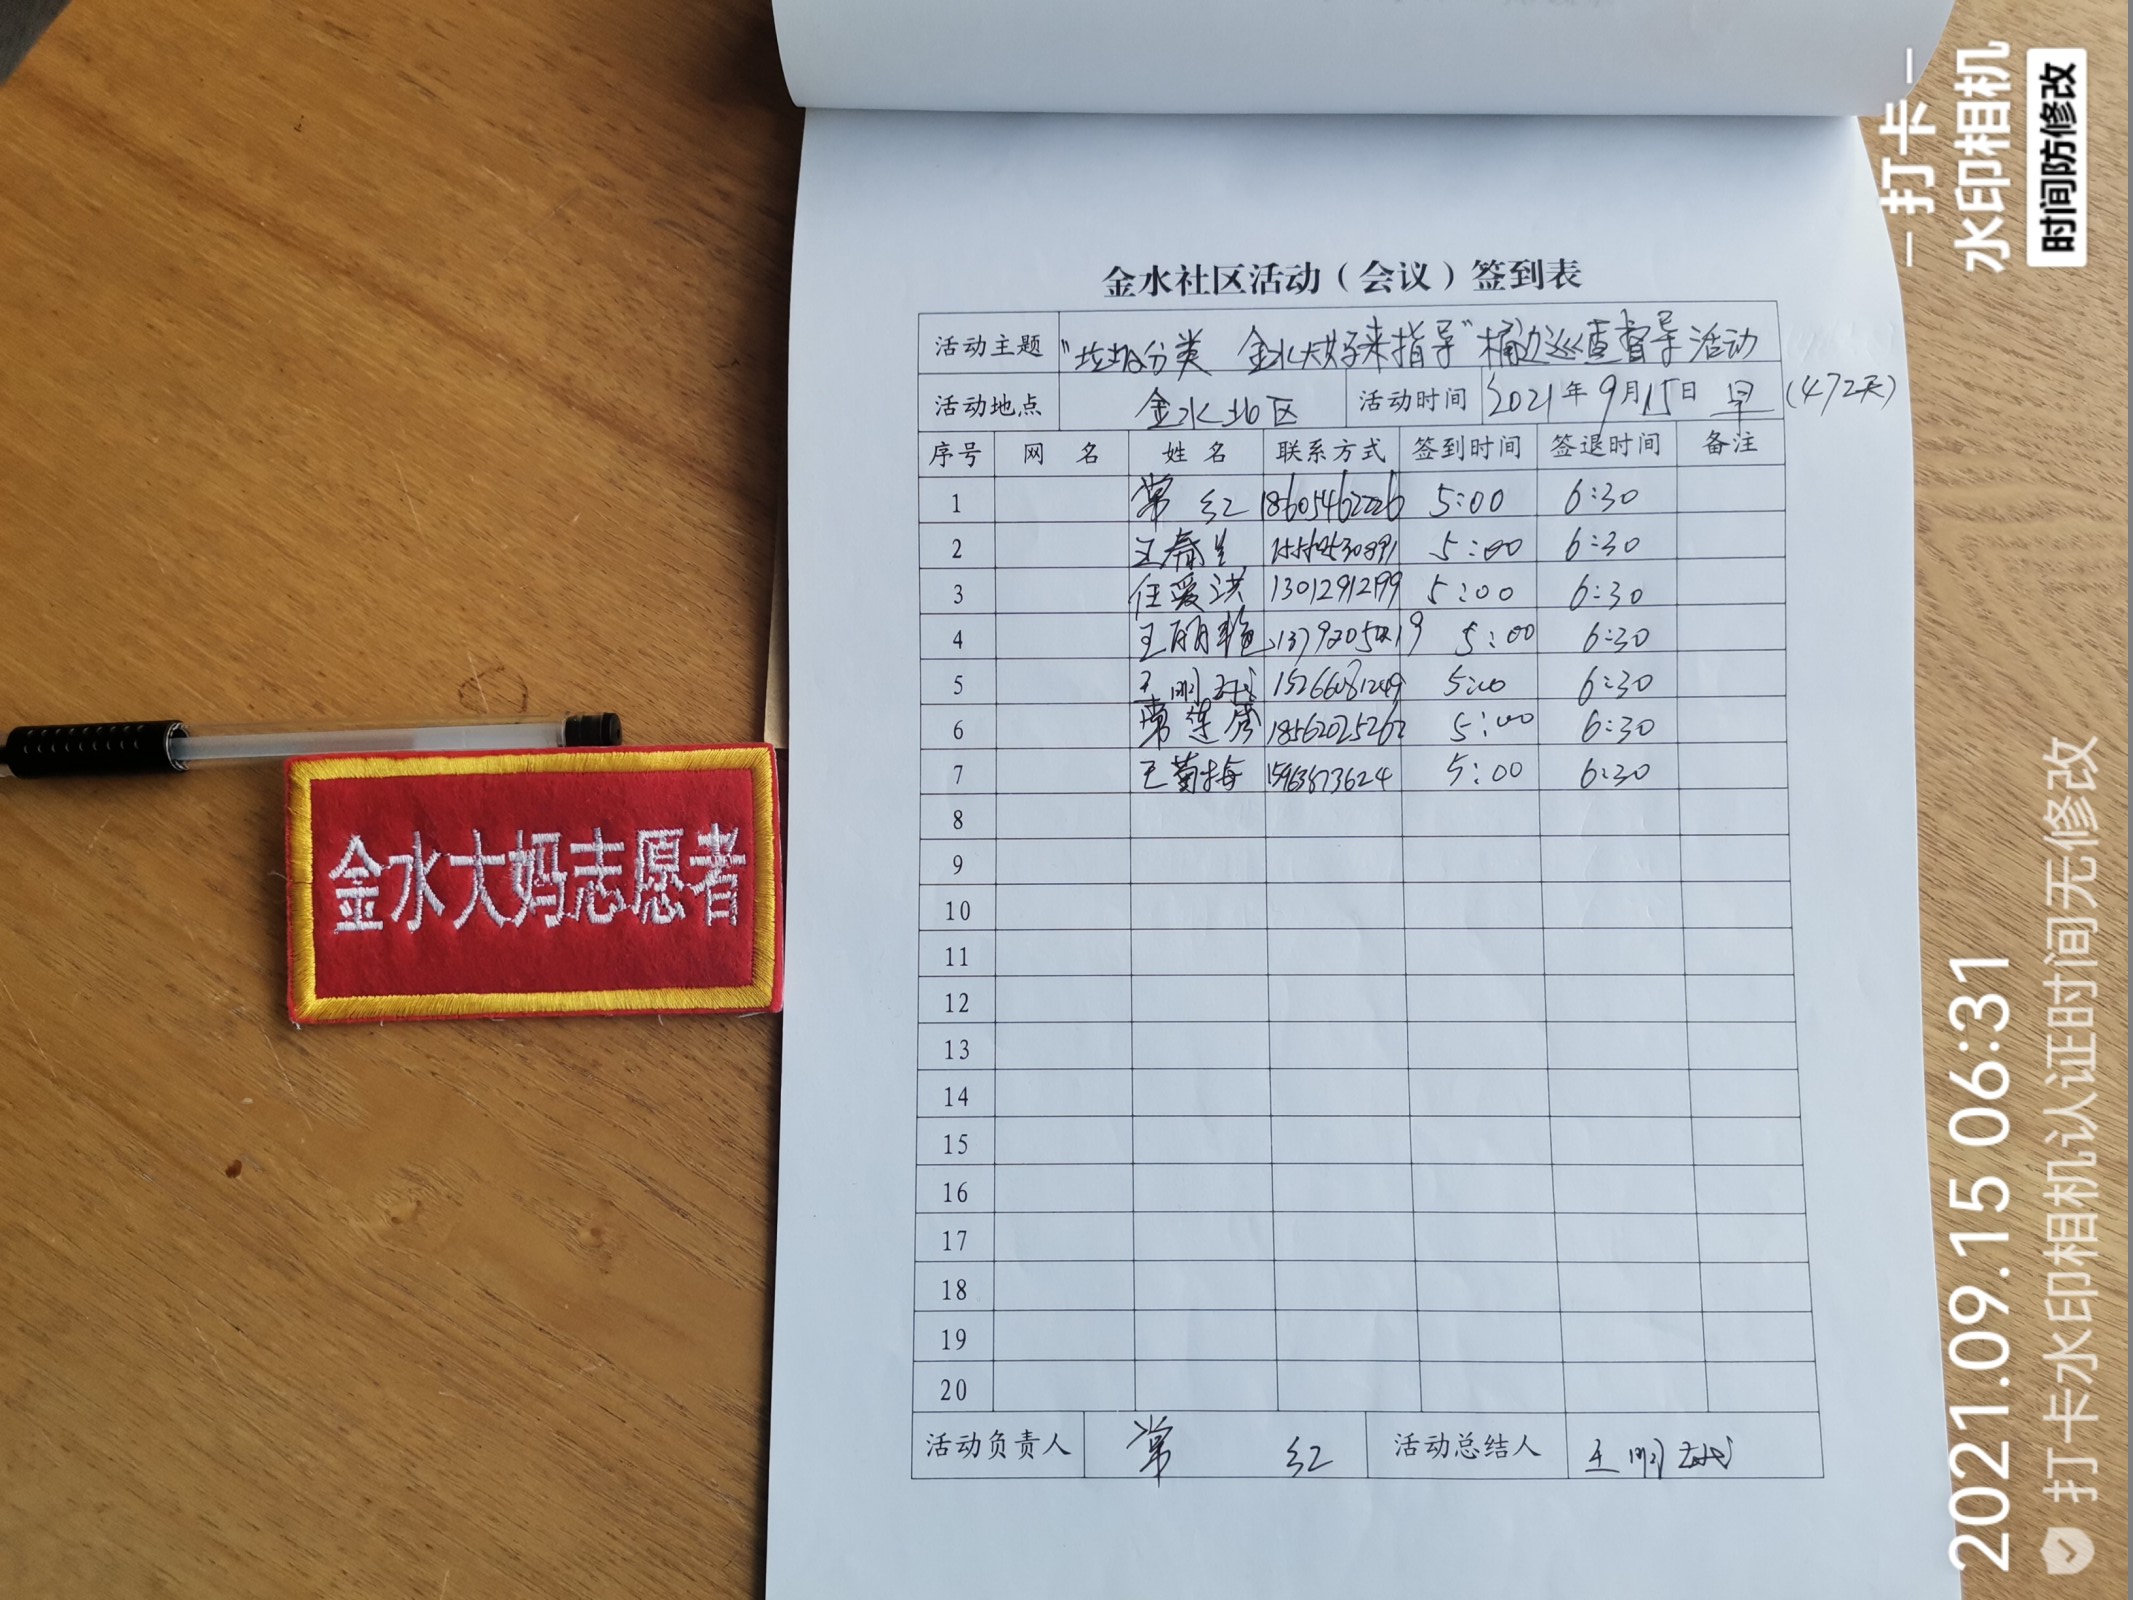 金水社区活动（会议）签到表
活动主题 "垃圾分类 金水大妈来指导"桶边巡查督导活动
活动地点 金水北区 活动时间 2021年9月15日 早 (472天)
序号 网 名 姓 名 联系方式 签到时间 签退时间 备注
1 常 红 18605462226 5:00 6:30
2 王春生 5:00 6:30
3 任爱洪 13012912199 5:00 6:30
4 王丽艳 5:00 6:30
5 王明 15266081249 5:00 6:30
6 常连秀 18562025262 5:00 6:30
7 王菊梅 15963873624 5:00 6:30
8
9
10
11
12
13
14
15
16
17
18
19
20
活动负责人 常 红 活动总结人 王明
金水大妈志愿者
打卡
水印相机
时间防修改
2021.09.15 06:31
打卡水印相机认证时间无修改